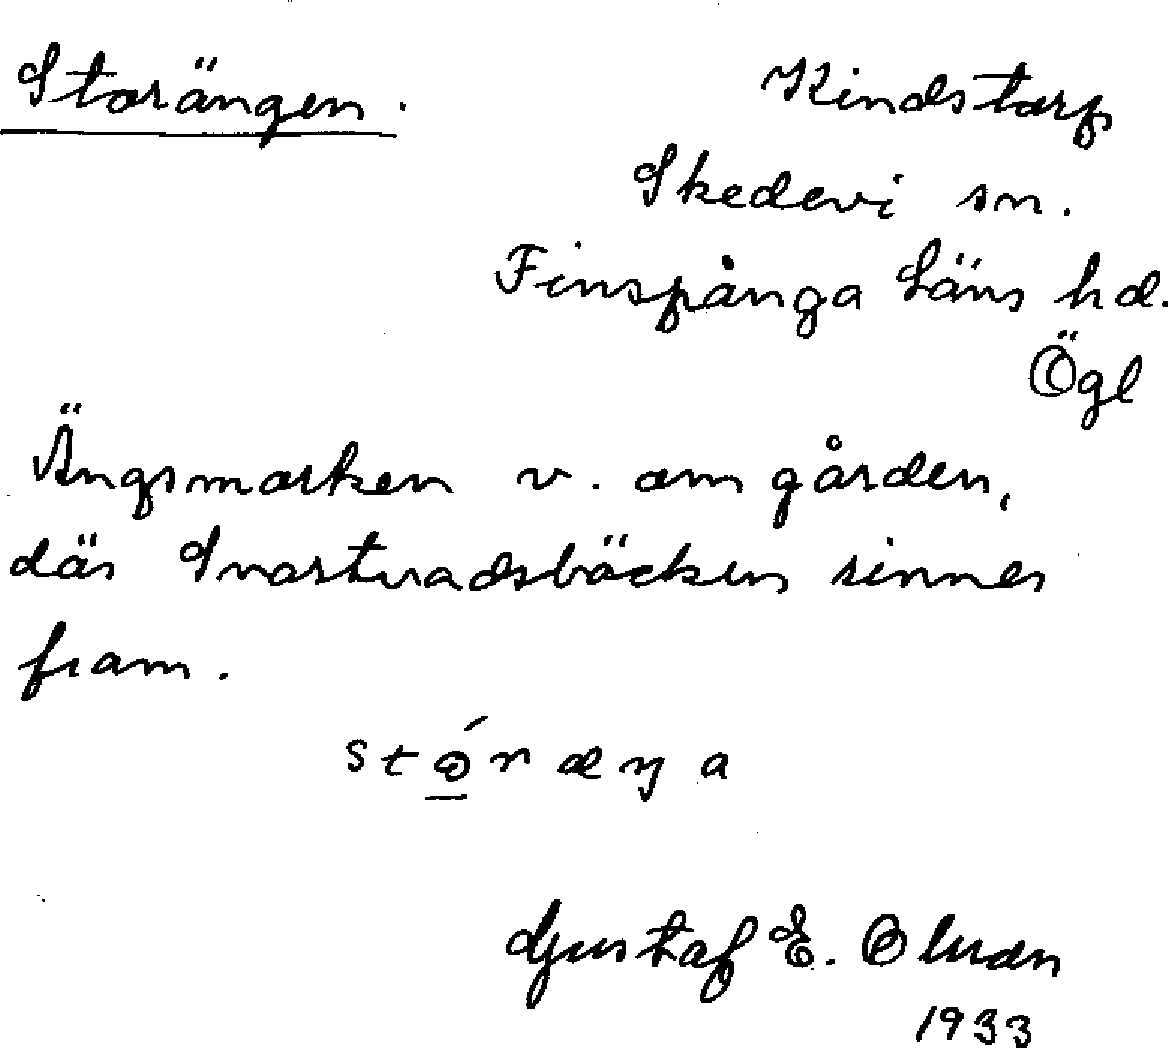 Storängen.
Kindstorp
Skedevi sn.
Finspånga Läns hd.
Ögl
Ängsmarken v. om gården,
där Svartvadsbäcken rinner
fram.
Gustaf E.
1933